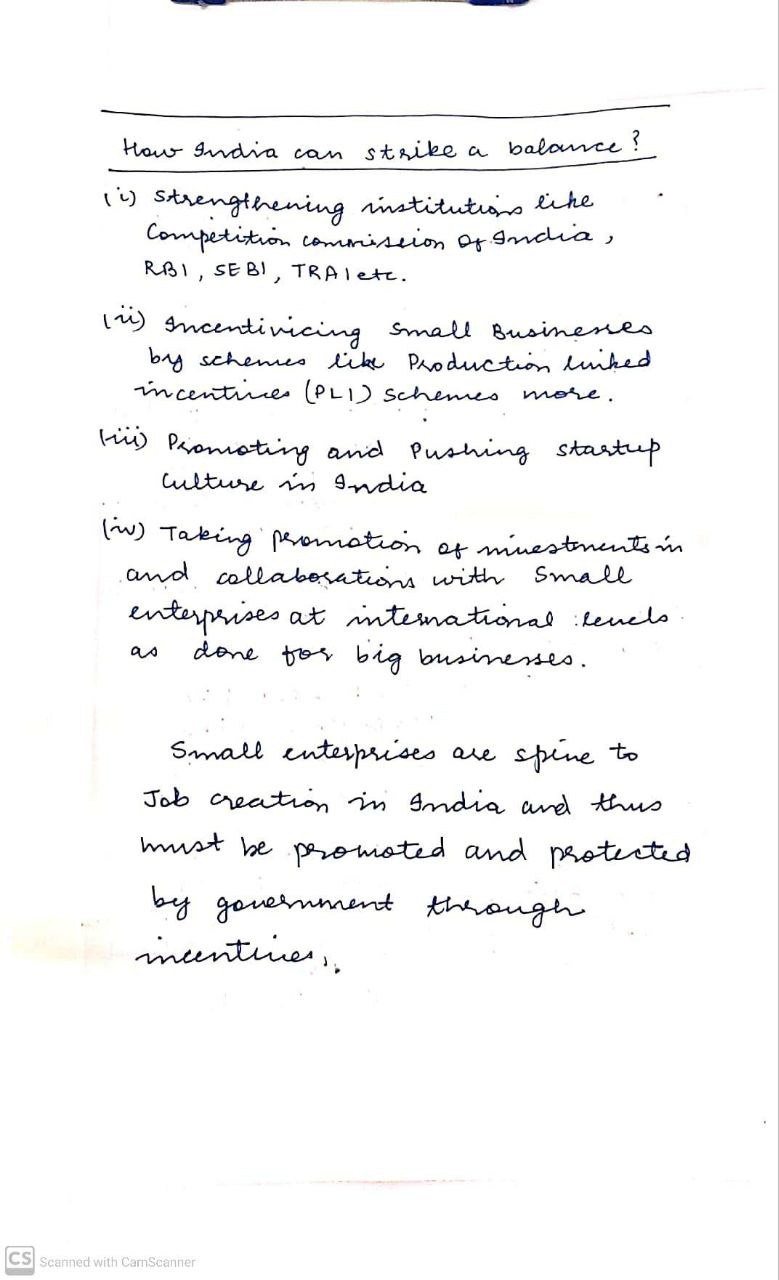 How India can strike a balance?
(i) Strengthening institutions like
Competition commission of India,
RBI, SEBI, TRAI etc.
(ii) Incentivicing Small Businesses
by schemes like Production linked
incentives (PLI) schemes more.
(iii) Promoting and Pushing startup
Culture in India
(iv) Taking promotion of investments in
and collaborations with Small
enterprises at international levels
as done for big businesses.
Small enterprises are spine to
Job creation in India and thus
must be promoted and protected
by government through
incentives.
CS Scanned with CamScanner